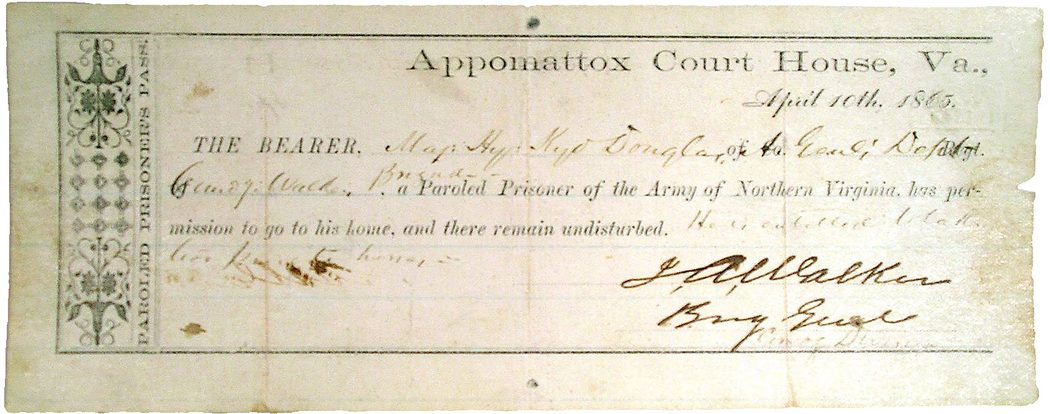 PAROLED PRISONER'S PASS.
Appomattox Court House, Va.,
April 10th, 1865.
THE BEARER, Maj. Hy. Kyd Douglas, of Co. A. Genl's Dept Regt.
of Walker, Brigade, a Paroled Prisoner of the Army of Northern Virginia, has per-
mission to go to his home, and there remain undisturbed. He is entitled to take
two horses
J. A. Walker
Brig Genl